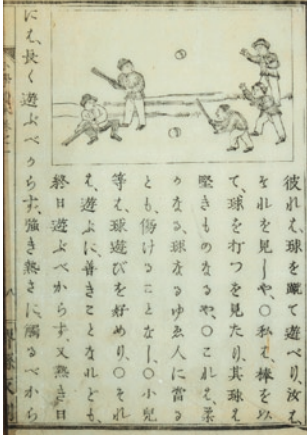 彼れは、球を蹴て遊べり、汝は、
それを見しや、〇私は、棒を以
て、球を打つを見たり、其球は、
堅きものなるや、〇これは、柔
かなる、球なるゆゑ、人に當る
とも、傷けることなし、〇小兒
等は、球遊びを好めり、〇それ
は、遊ぶに善きことなれども、
終日遊ぶべからず、又熱き日
には、長く遊ぶべからず、強き熱さに、觸るべから